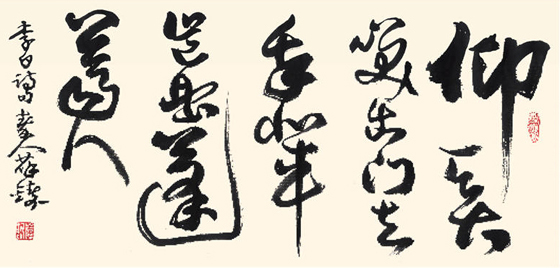 仰天大
笑出门去
我辈
岂是蓬
蒿人
李白诗